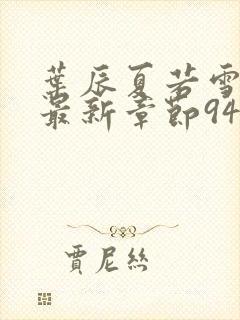 葉辰夏若雪
最新章節94
賈尼絲